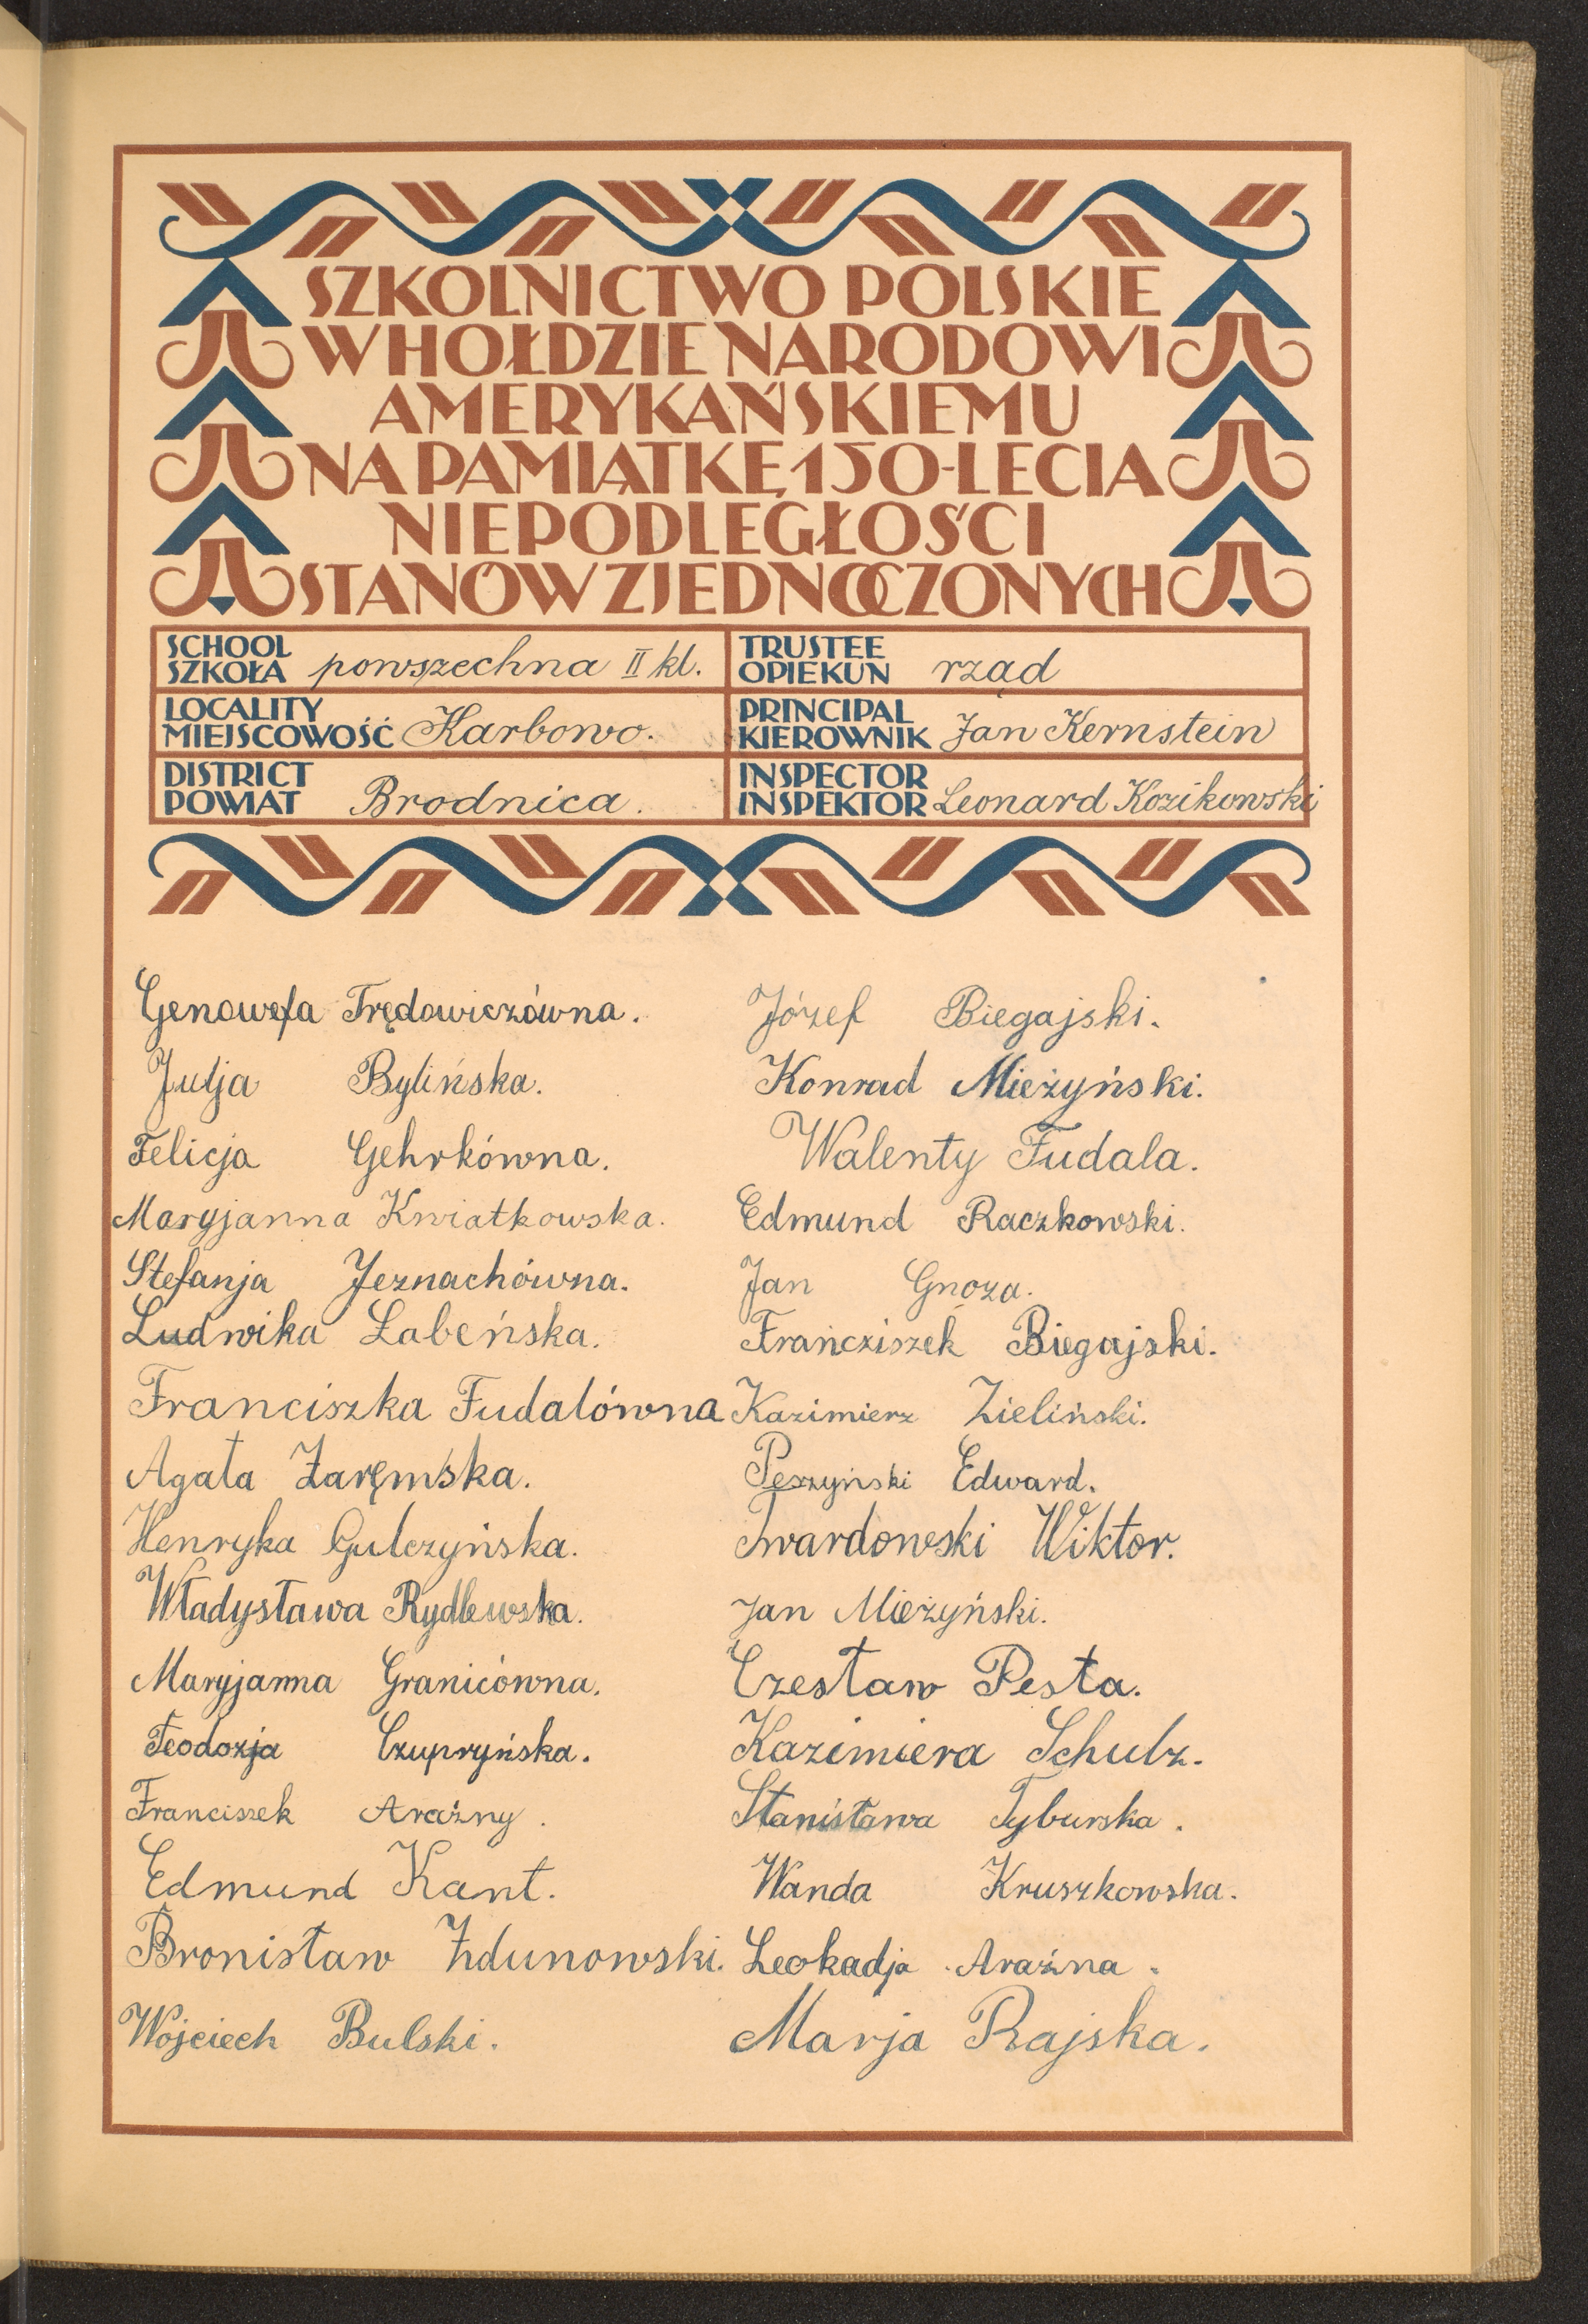 SZKOLNICTWO POLSKIE
W HOŁDZIE NARODOWI
AMERYKAŃSKIEMU
NA PAMIĄTKĘ 150-LECIA
NIEPODLEGŁOŚCI
STANÓW ZJEDNOCZONYCH
SCHOOL
SZKOŁA powszechna II kl.
TRUSTEE
OPIEKUN rząd
LOCALITY
MIEJSCOWOŚĆ Karbowo.
PRINCIPAL
KIEROWNIK Jan Kernstein
DISTRICT
POWIAT Brodnica.
INSPECTOR
INSPEKTOR Leonard Kozikowski
Genowefa Trędowiczówna.
Julja Bylińska.
Felicja Gehrkówna.
Maryjanna Kwiatkowska.
Stefanja Jeznachówna.
Ludwika Łabeńska.
Franciszka Fudalówna
Agata Zaręmska.
Henryka Gulczyńska.
Władysława Rydlewska.
Maryjanna Granicówna.
Teodozja Czupryńska.
Franciszek Araźny.
Edmund Kant.
Bronisław Zdunowski.
Wojciech Bulski.
Józef Biegajski.
Konrad Mieżyński.
Walenty Fudala.
Edmund Raczkowski.
Jan Gnoza.
Franćziszek Biegajski.
Kazimierz Zieliński.
Peszyński Edward.
Twardowski Wiktor.
Jan Mieżyński.
Czesław Pesta.
Kazimiera Schulz.
Stanisława Tyburska.
Wanda Kruszkowska.
Leokadja Araźna.
Marja Rajska.